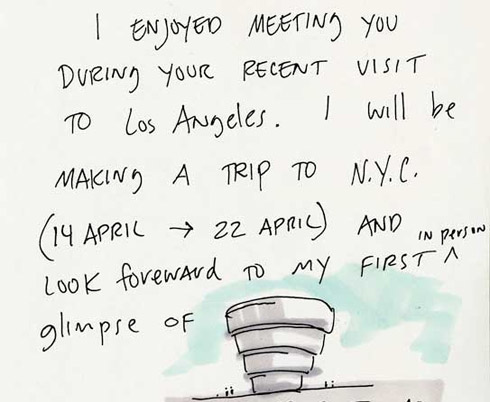 I ENJOYED MEETING YOU
DURING YOUR RECENT VISIT
TO Los Angeles. I will be
MAKING A TRIP TO N.Y.C.
(14 APRIL → 22 APRIL) AND
LOOK foreward TO MY FIRST ^ IN person
glimpse OF